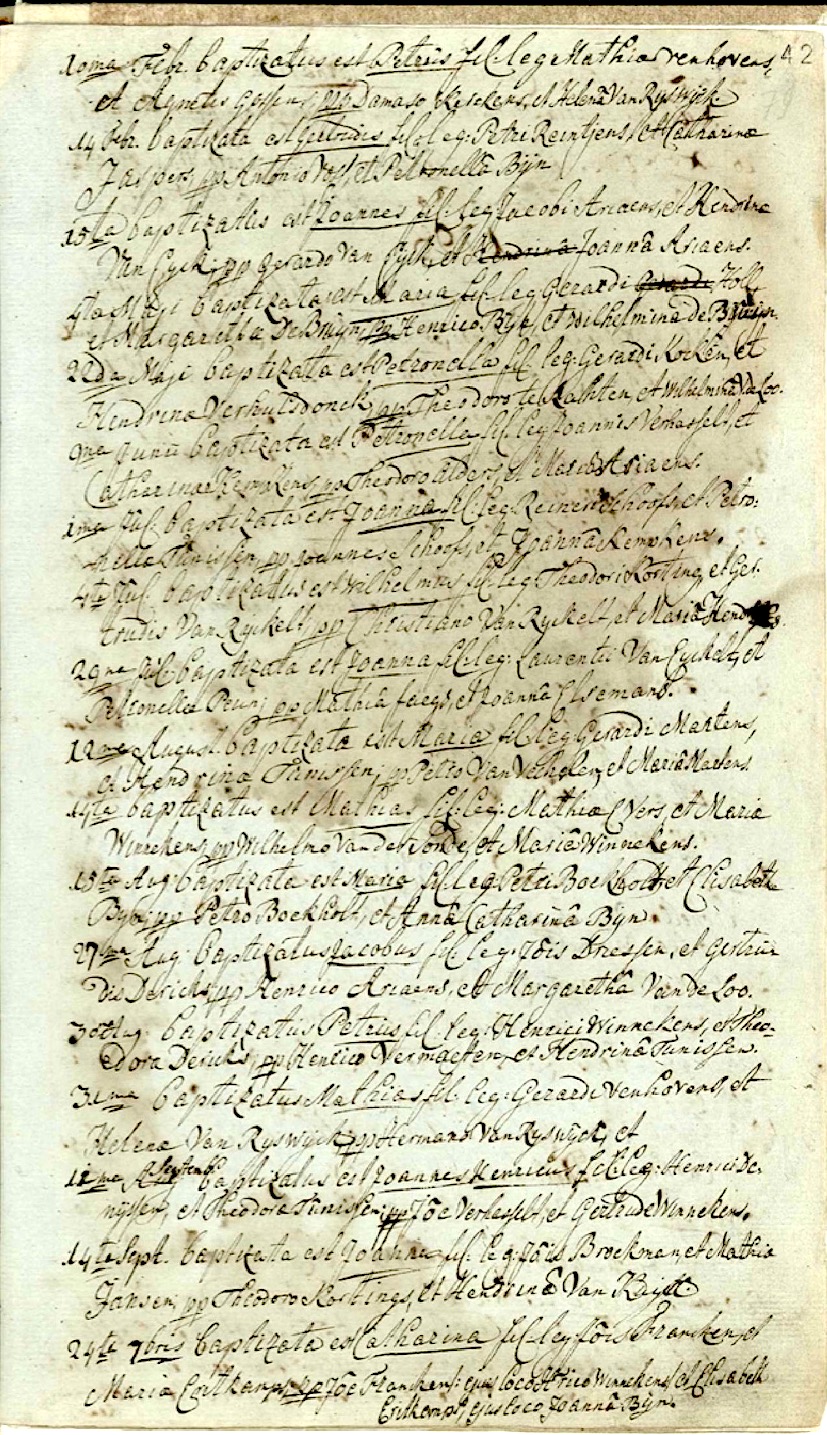 42
10ma Febr. baptizatus est Petrus fil. leg. Mathiæ Venhovens,
et Agnetis Gossens, pp Damaso Kerckens, et Helenâ Van Ryswijck
14 Febr. baptizata est Gertrudis fil. leg: Petri Reintjens, et Catharinæ
Jaspers, pp Antonio Vos, et Petronellâ Bijn
15ta baptizatus est Joannes fil. leg. Jacobi Ariaens, et Hendrinæ
Van Eyck, pp Gerardo Van Eyck, et Hendrinâ Joannâ Ariaens.
4ta Maji baptizata est Maria fil. leg Gerardi Gerardi Holl,
et Margaretha De Bruijn, pp Henrico Bijn, et Wilhelmina de Bruijn.
22da Maji baptizata est Petronella fil. leg: Gerardi Kocken, et
Hendrina Verhulsdonck, pp Theodoro te Lahten, et Wilhelmina V. de Loo.
Junii baptizata est Petronella fil. leg Joannis Verhasselt, et
Catharinæ Kempkens, pp Theodoro Alders, et Mariâ Ariaens.
1ma Jul. baptizata est Joanna fil. leg. Reineri Schoofs, et Petro:
nella Tunissen, pp Joannes Schoofs, et Joannâ Kempkens.
4ta Jul. baptizatus est Wilhelmus fil. leg Theodori Korting, et Ger:
trudis Van Ryckelt, pp Christiano Van Ryckelt, et Mariâ
29na Jul. baptizata est Joanna fil. leg: Laurentii Van Eyckelt, et
Petronella Peun, pp Mathiâ faegs, et Joannâ Elsemans.
12ma August. baptizata est Maria fil. leg Gerardi Martens,
et Hendrina Tunissen, pp Petro Van Vechelen, et Mariâ Martens.
14ta baptizatus est Mathias fil. leg: Mathiæ Evers, et Maria
Winnekens, pp Wilhelmo Van de et Mariâ Winnekens.
15ta Aug: baptizata est Maria fil. leg. Petri Boekholt, et Elisabeth
Bijn, pp Petro Boekholt, et Annâ Catharinâ Bijn.
27ma Aug: baptizatus Jacobus fil. leg: Jöis Driessen, et Gertru
dis Dericks, pp Henrico Ariaens, et Margarethâ Van de Loo.
30 Aug baptizatus Petrus fil. leg: Henrici Winnekens, et Theo-
dora Dericks, pp Henrico Vermaeten, et Hendrinâ Tunissen.
31ma baptizatus Mathias fil. leg: Gerardi Venhovens, et
Helena Van Ryswijck pp Hermano Van Ryswijck, et
12ma Septemb baptizatus est Joannes Henricus fil. leg: Henrici De:
nijssen, et Theodora Tunissen, pp Jöe Verhasselt, et Gertrude Winnekens.
14ta Sept. baptizata est Joanna fil. leg: Jöis Broekman, et Mathia
Jansen, pp Theodoro Kortings, et Hendrinâ Van
24ta 7bris baptizata est Catharina fil. leg Jöis Francken, et
Maria Eritkamp, pp Jöe Francken: ejus loco Hrico Winnekens, et Elisabeth
Eritkemps, ejus loco Joannâ Bijn.